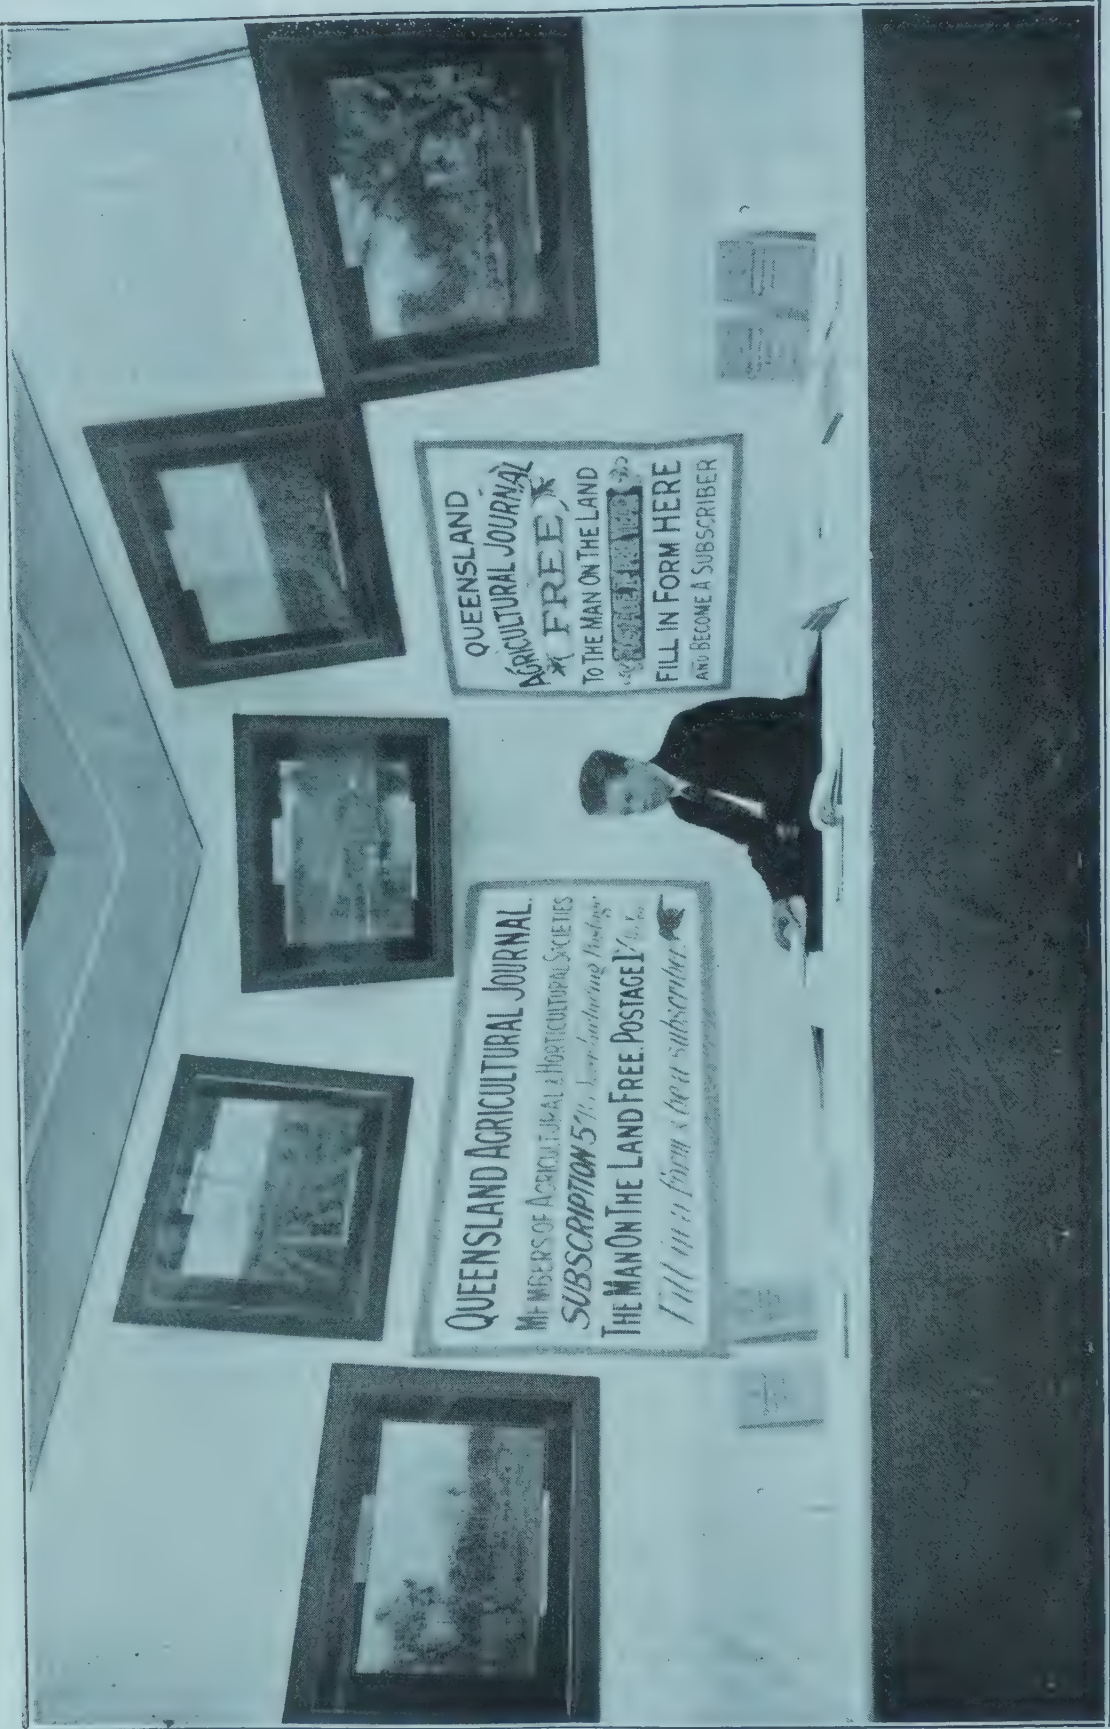 QUEENSLAND AGRICULTURAL JOURNAL.
MEMBERS OF AGRICULTURAL & HORTICULTURAL SOCIETIES
SUBSCRIPTION 5/- including Postage
THE MAN ON THE LAND FREE. POSTAGE 1/-
Fill in a form & be a subscriber
QUEENSLAND
AGRICULTURAL JOURNAL
FREE
TO THE MAN ON THE LAND
FILL IN FORM HERE
AND BECOME A SUBSCRIBER